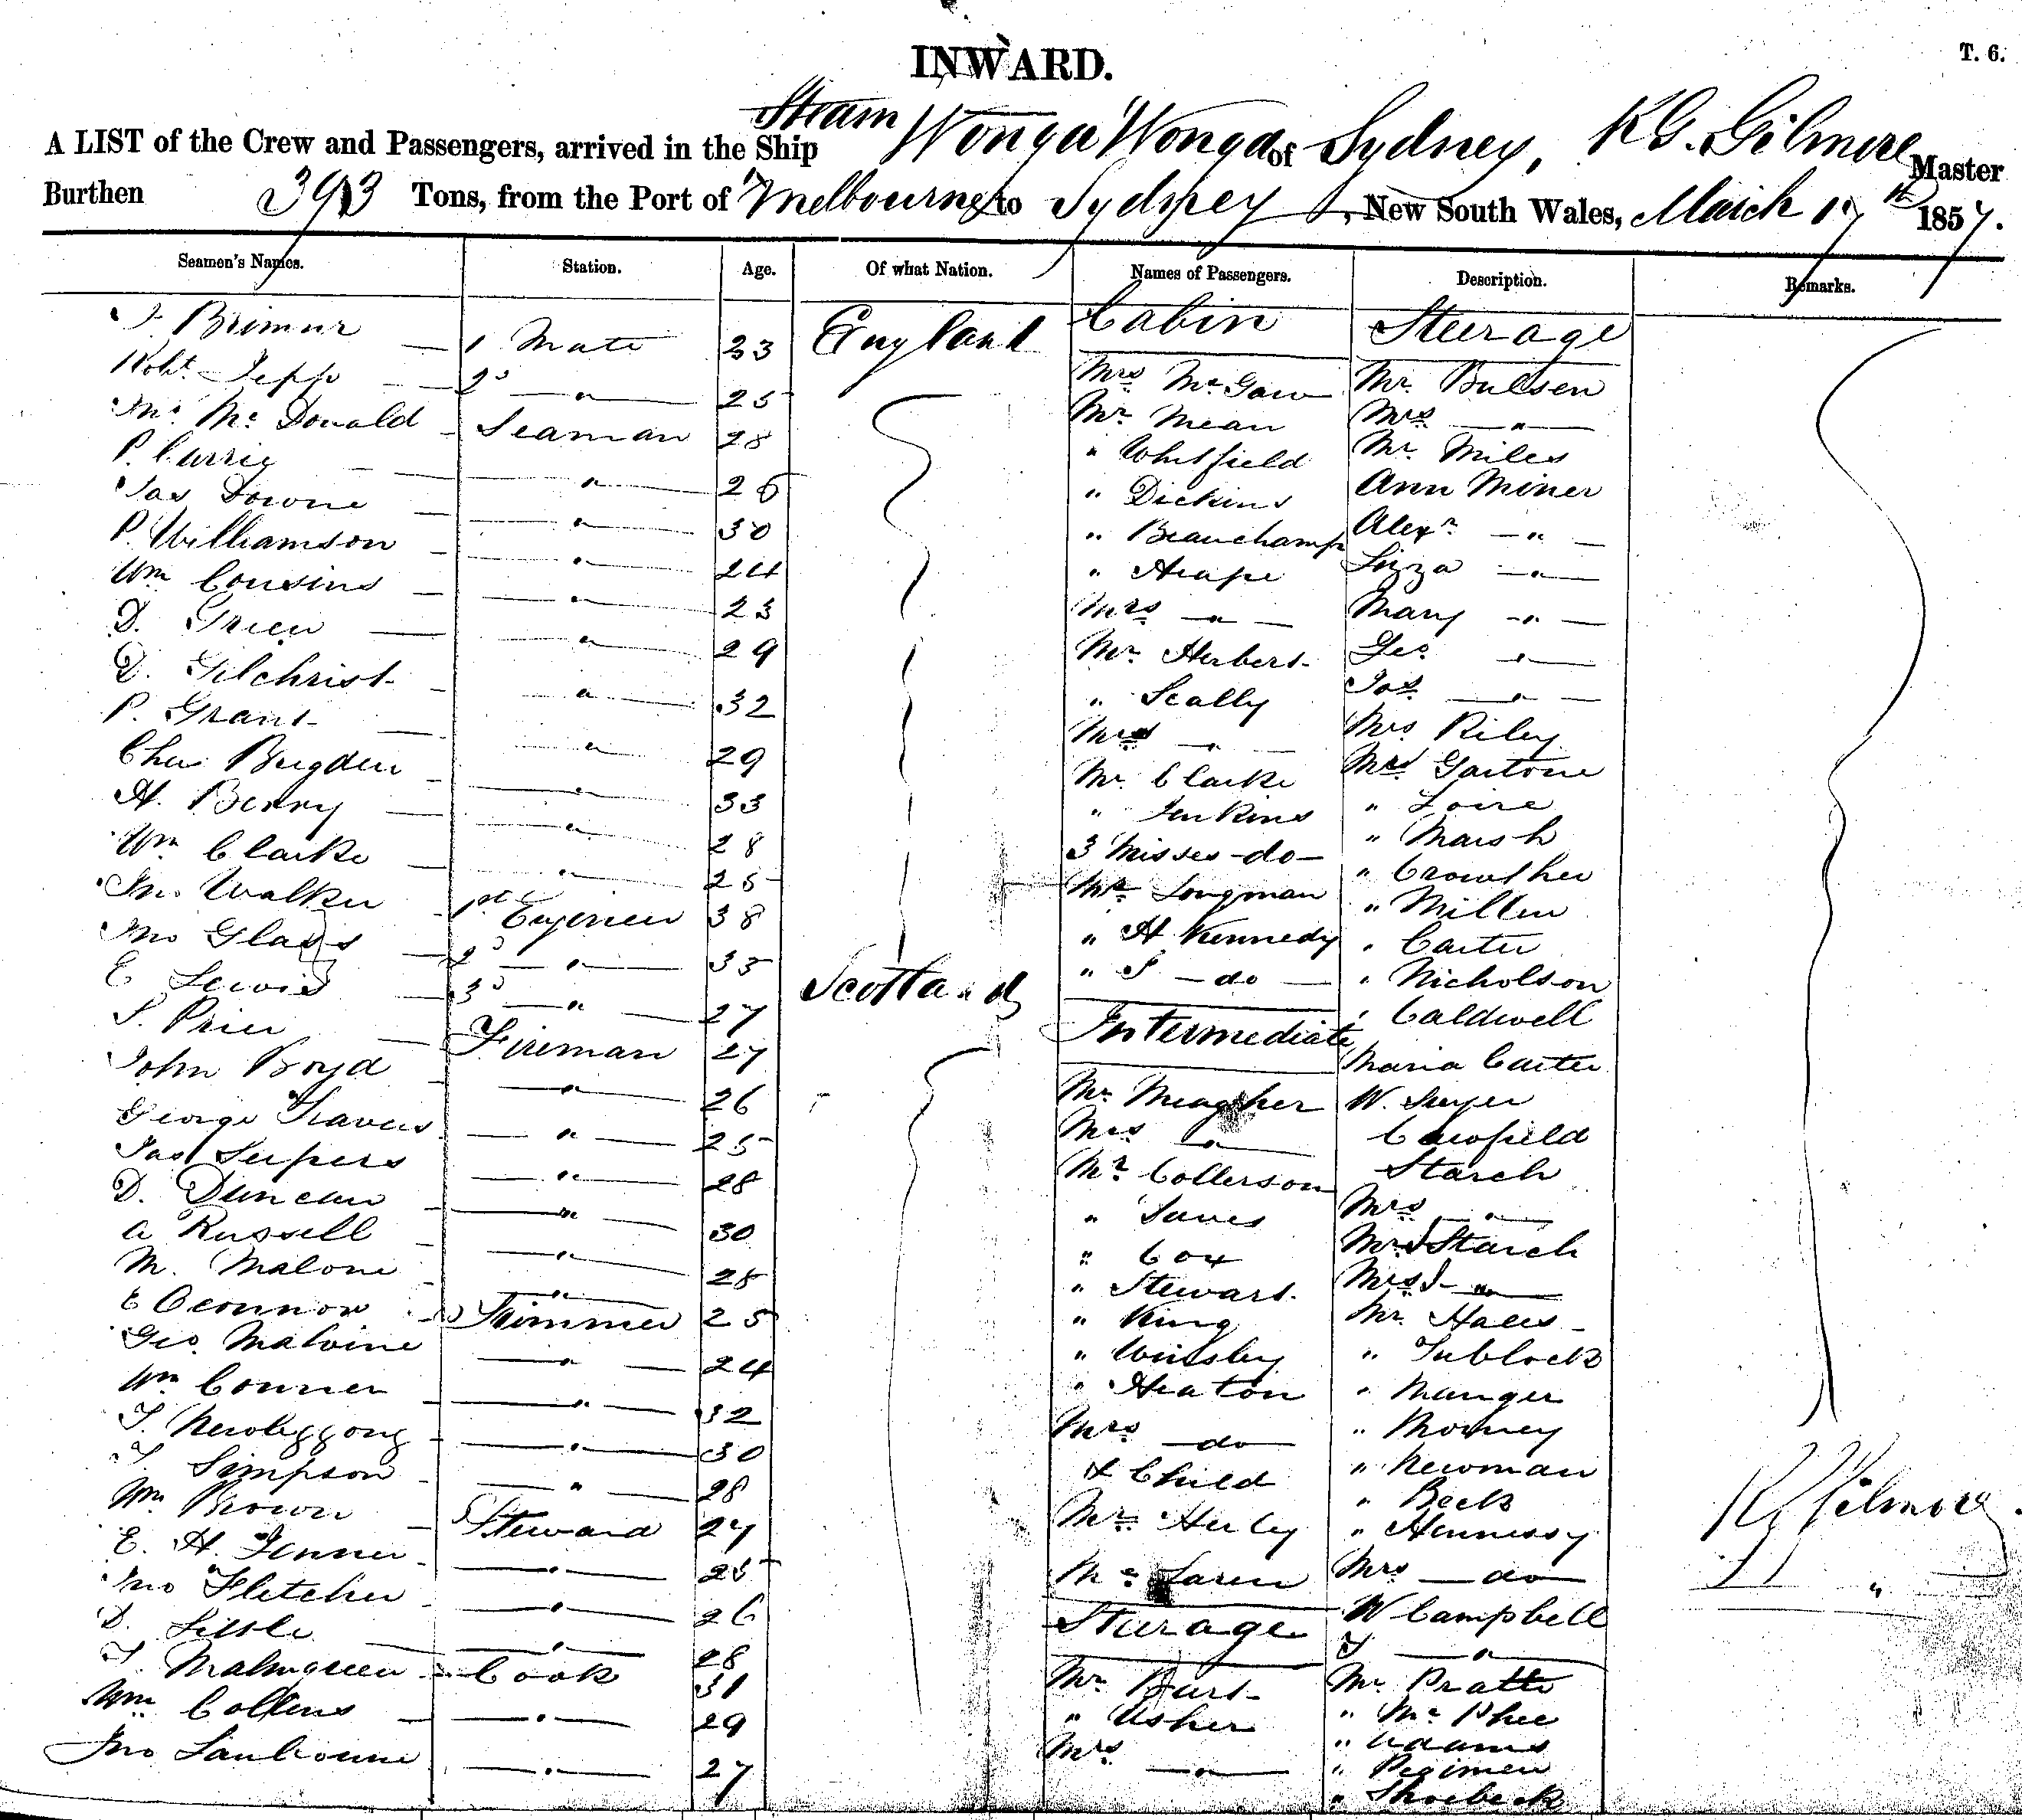 INWARD.
T. 6.
Steam
A LIST of the Crew and Passengers, arrived in the Ship Wonga Wonga of Sydney, R G. Gilmore Master
Burthen 393 Tons, from the Port of Melbourne to Sydney, New South Wales, March 17th 1857.
Seamen's Names. Station. Age. Of what Nation. Names of Passengers. Description. Remarks.
1 Mate 33 England
Robt Jepp 2d " 25
Jno McDonald Seaman 28
P. Currie " 26
Jas Downe " 30
P. Williamson " 24
Wm Cousins " 23
D. Green " 29
D. Gilchrist " 32
P. Grant " 29
Chas Bugden " 33
H. Berry " 28
Wm Clarke " 25
Jno Walker 1st Engineer 38
Jno Glass 2d " 33
E Lewis 3d " 27 Scotland
S. Price Fireman 27
John Boyd " 26
George Travers " 25
Jas " 28
D. Duncan " 30
A Russell " 28
M. Malone "
E Oconnor Trimmer 25
Geo. Malvine " 24
Wm Conner " 32
T. " 30
T. Simpson " 28
Wm Brown Steward 27
E. H. Fenner " 25
Jno Fletcher " 26
D. Little " 28
T. Malmgreen Cook 31
Wm Collens " 29
Jno " 27
Cabin
Mrs McGaw
Mr Mean
" Whitfield
" Dickins
" Beauchamp
" Heape
Mrs "
Mr Herbert
" Scally
Mrs "
Mr Clarke
" Jenkins
3 Misses do
Mr Longman
" H Kennedy
" S do
Intermediate
Mr Meagher
Mrs "
Mr Collerson
"
" Cox
" Stewart
" King
" Winsley
" Heaton
Mrs do
& Child
Mr Herley
McLaren
Steerage
Mr Burt
" Usher
Mrs "
Steerage
Mr Bulsen
Mrs "
Mr Miles
Ann Miner
Alexr "
Lizza "
Mary "
Geo "
Jos "
Mrs Riley
Mrs Gartone
" Loire
" Marsh
" Crowther
" Miller
" Carter
" Nicholson
" Caldwell
Maria Carter
W. Sawyer
Cawfield
Starch
Mrs "
Mr J Starch
Mrs J "
Mr Hales
" Tublock
" Manger
" Morney
" Newman
" Beck
" Hennessy
Mrs do
W Campbell
J "
Mr Pratt
" McPhee
" Adams
" Pegimen
" Shoebeck
R G Gilmore